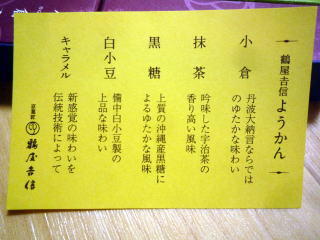 鶴屋吉信 ようかん
小倉
丹波大納言ならでは
のゆたかな味わい
抹茶
吟味した宇治茶の
香り高い風味
黒糖
上質の沖縄産黒糖に
よるゆたかな風味
白小豆
備中白小豆製の
上品な味わい
キャラメル
新感覚の味わいを
伝統技術によって
京菓匠
鶴屋吉信